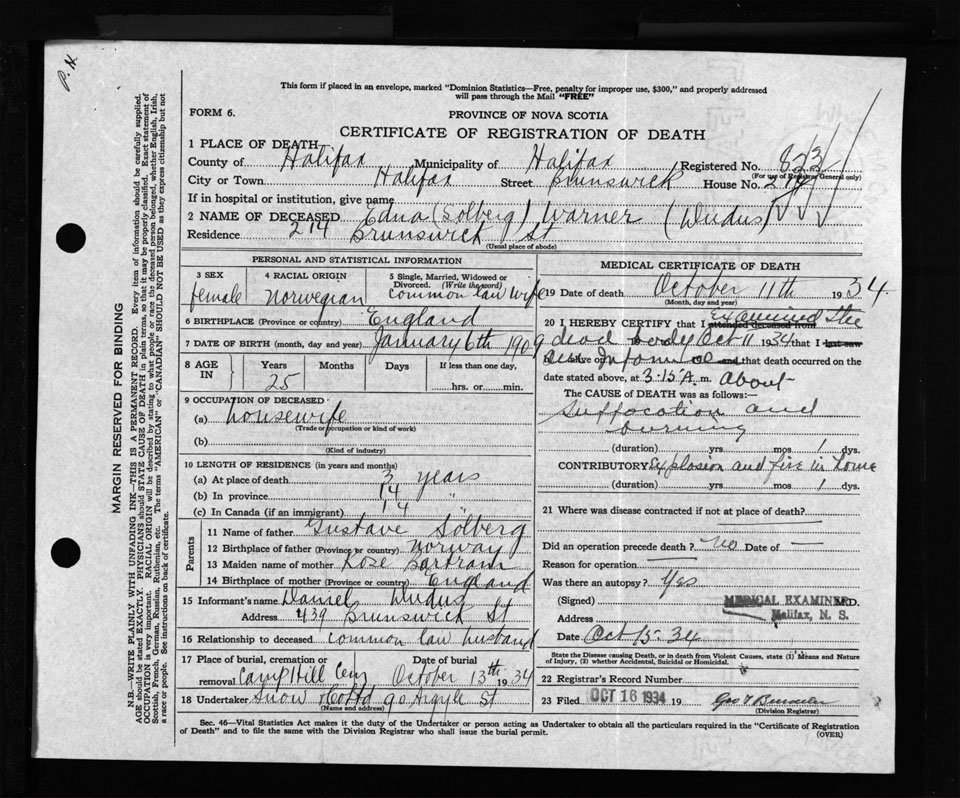 P.H.
This form if placed in an envelope, marked "Dominion Statistics—Free, penalty for improper use, $300," and properly addressed
will pass through the Mail "FREE"
FORM 6.
PROVINCE OF NOVA SCOTIA
CERTIFICATE OF REGISTRATION OF DEATH
1 PLACE OF DEATH
County of Halifax Municipality of Halifax Registered No. 823
(For use of Registrar General only)
City or Town Halifax Street Brunswick House No. 214
If in hospital or institution, give name
2 NAME OF DECEASED Edna (Solberg) Warner (Dudus)
Residence 214 Brunswick St
(Usual place of abode)
PERSONAL AND STATISTICAL INFORMATION
3 SEX female
4 RACIAL ORIGIN Norwegian
5 Single, Married, Widowed or Divorced. (Write the word) Common law wife
6 BIRTHPLACE (Province or country) England
7 DATE OF BIRTH (month, day and year) January 6th 1909
8 AGE IN Years 25 Months Days If less than one day,
hrs. or min.
9 OCCUPATION OF DECEASED
(a) housewife
(Trade or occupation or kind of work)
(b)
(Kind of industry)
10 LENGTH OF RESIDENCE (in years and months)
(a) At place of death 3 years
(b) In province 14 "
(c) In Canada (if an immigrant) 14
Parents
11 Name of father Gustave Solberg
12 Birthplace of father (Province or country) Norway
13 Maiden name of mother Rose Bartram
14 Birthplace of mother (Province or country) England
15 Informant's name Daniel Dudus
Address 439 Brunswick St
16 Relationship to deceased common law husband
17 Place of burial, cremation or removal Camp Hill Cem Date of burial October 13th 1934
18 Undertaker Snow Co Ltd 90 Argyle St
(Name and address)
MEDICAL CERTIFICATE OF DEATH
19 DATE OF DEATH October 11th 1934
(Month, day and year)
20 I HEREBY CERTIFY that I attended deceased from Examined the
dead body Oct 11 1934 that I last saw
alive on Informed and that death occurred on the
date stated above, at 3:15 A.m. About
The CAUSE OF DEATH was as follows:—
Suffocation and
burning
(duration) yrs. mos. 1 dys.
CONTRIBUTORY Explosion and fire in home
(duration) yrs. mos. 1 dys.
21 Where was disease contracted if not at place of death?
Did an operation precede death? No Date of —
Reason for operation —
Was there an autopsy? Yes
(Signed) MEDICAL EXAMINER M.D.
Address Halifax, N. S.
Date Oct 15-34
State the Disease causing Death, or in death from Violent Causes, state (1) Means and
Nature of Injury, (2) whether Accidental, Suicidal or Homicidal.
22 Record Number
23 Filed OCT 16 1934 19
(Division Registrar)
Sec. 46—Vital Statistics Act makes it the duty of the Undertaker or person acting as Undertaker to obtain all the particulars required in the "Certificate of Registration
of Death" and to file the same with the Division Registrar who shall issue the burial permit.
(OVER)
MARGIN RESERVED FOR BINDING
N.B.—WRITE PLAINLY WITH UNFADING INK—THIS IS A PERMANENT RECORD. Every item of information should be carefully supplied.
AGE should be stated EXACTLY. PHYSICIANS should STATE CAUSE OF DEATH in plain terms, so that it may be properly classified. Exact statement of
OCCUPATION is very important. RACIAL ORIGIN will be described by stating to what people or race the deceased person belonged, whether English, Irish,
Scottish, French, German, Russian, Ruthenian, etc. The terms "AMERICAN" or "CANADIAN" SHOULD NOT BE USED as they express citizenship but not
a race or people. See instructions on back of certificate.